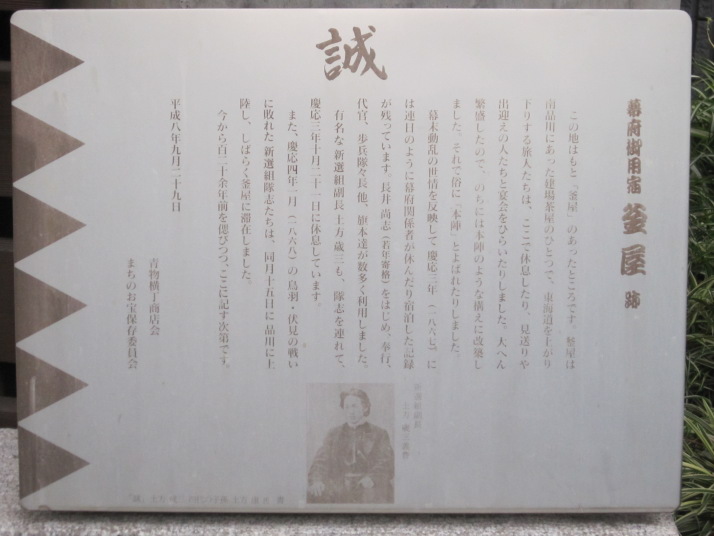 誠
幕府御用宿 釜屋 跡
この地はもと「釜屋」のあったところです。釜屋は
南品川にあった建場茶屋のひとつで、東海道を上がり
下りする旅人たちは、ここで休息したり、見送りや
出迎えの人たちと宴会をひらいたりしました。大へん
繁盛したので、のちには本陣のような構えに改築し
ました。それで俗に「本陣」とよばれたりしました。
幕末動乱の世情を反映して慶応三年(一八六七)に
は連日のように幕府関係者が休んだり宿泊した記録
が残っています。長井尚志(若年寄格)をはじめ、奉行、
代官、歩兵隊々長他、旗本達が数多く利用しました。
有名な新選組副長土方歳三も、隊志を連れて、
慶応三年十月二十一日に休息しています。
また、慶応四年一月(一八六八)の鳥羽・伏見の戦い
に敗れた新選組隊志たちは、同月十五日に品川に上
陸し、しばらく釜屋に滞在しました。
今から百二十余年前を偲びつつ、ここに記す次第です。
平成八年九月二十九日
青物横丁商店会
まちのお宝保存委員会
新選組副長
土方歳三肖像